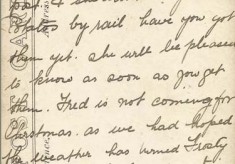 by rail have you got
them yet. she will be pleased
to know as soon as you get
them. Fred is not coming for
Christmas. as we had hoped
the weather has turned Frosty